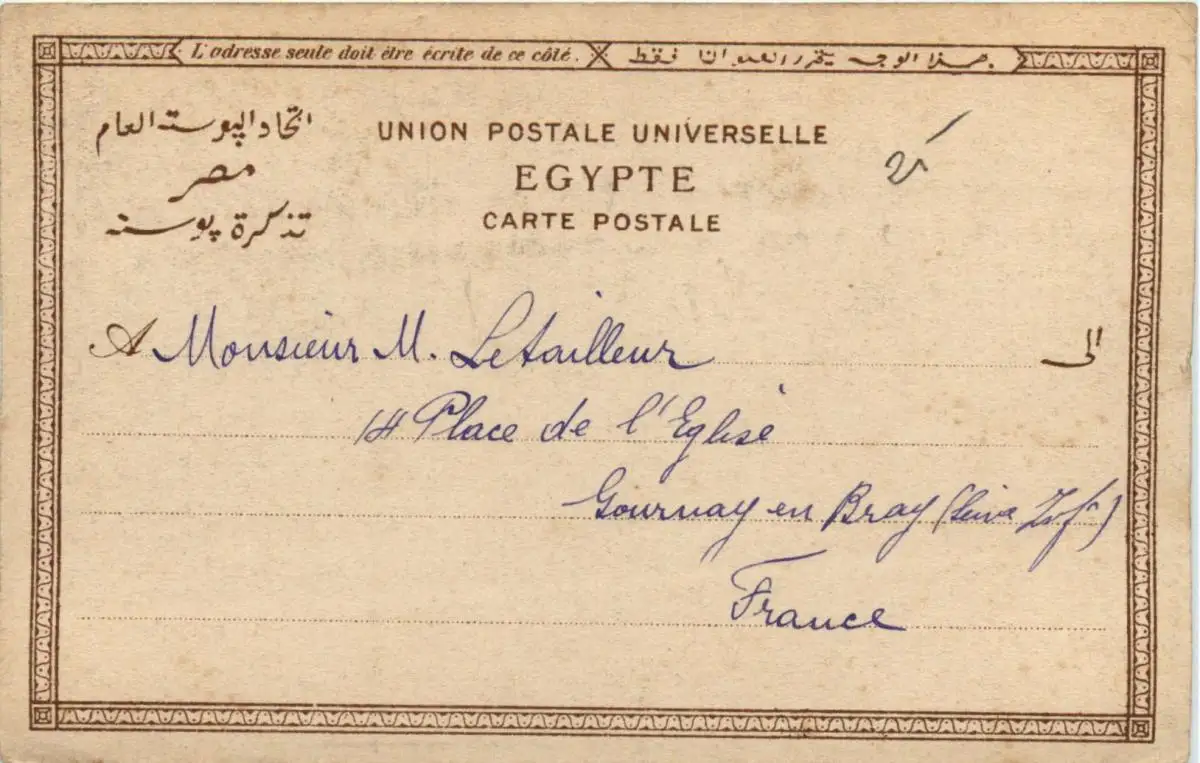 L'adresse seule doit être écrite de ce côté. هذا الوجه يتحرر العنوان فقط.
اتحاد الپوسته العام
مصر
تذكرة پوسته
UNION POSTALE UNIVERSELLE
EGYPTE
CARTE POSTALE
A Monsieur M. Letailleur الى
14 Place de l'Eglise
Gournay en Bray (Seine Infre)
France